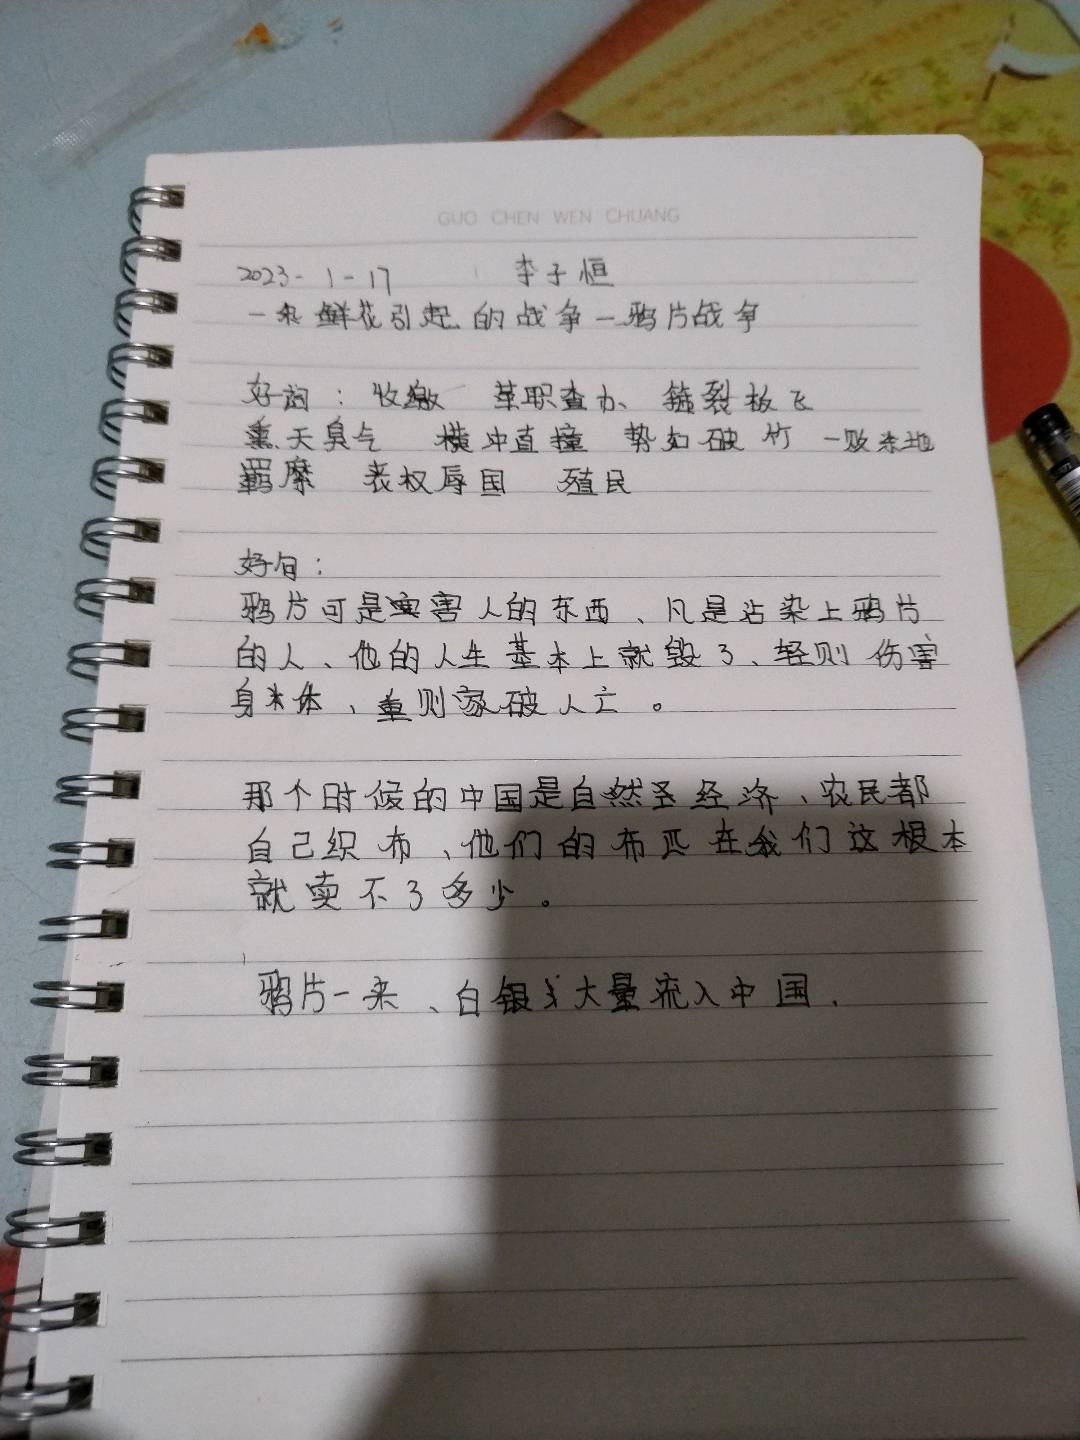 GUO CHEN WEN CHUANG
2023-1-17 李子恒
一朵鲜花引起的战争—鸦片战争
好词：收缴 革职查办 铁裂板飞
熏天臭气 横冲直撞 势如破竹 一败涂地
羁縻 丧权辱国 殖民
好句：
鸦片可是害人的东西、凡是沾染上鸦片
的人、他的人生基本上就毁了、轻则伤害
身体、重则家破人亡。
那个时候的中国是自然经济、农民都
自己织布、他们的布匹在我们这根本
就卖不了多少。
鸦片一来、白银大量流入中国.